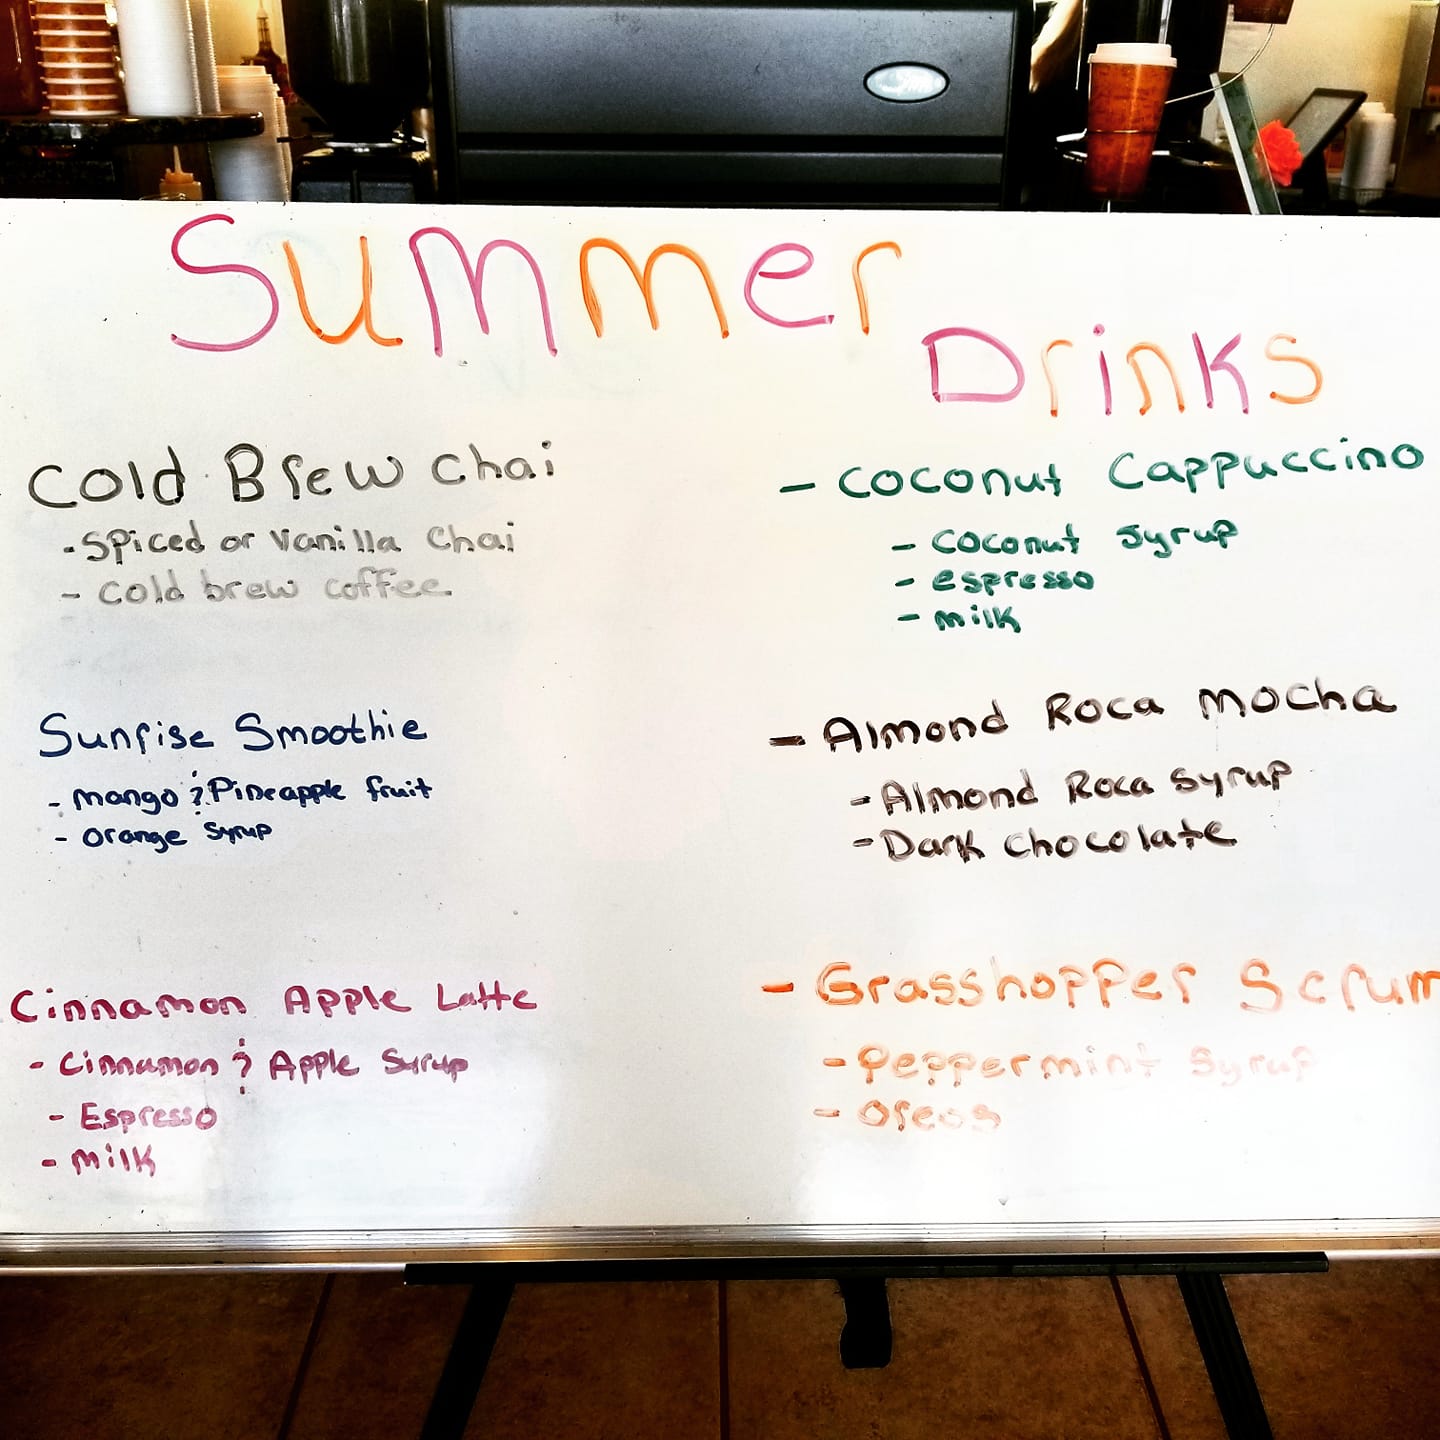 Summer
Drinks
Cold Brew Chai
- Spiced or Vanilla Chai
- Cold brew coffee
Sunrise Smoothie
- mango & Pineapple fruit
- orange syrup
Cinnamon Apple Latte
- Cinnamon & Apple Syrup
- Espresso
- milk
- Coconut Cappuccino
- coconut syrup
- espresso
- milk
- Almond Roca Mocha
- Almond Roca Syrup
- Dark Chocolate
- Grasshopper Scrum
- Peppermint Syrup
- Oreos